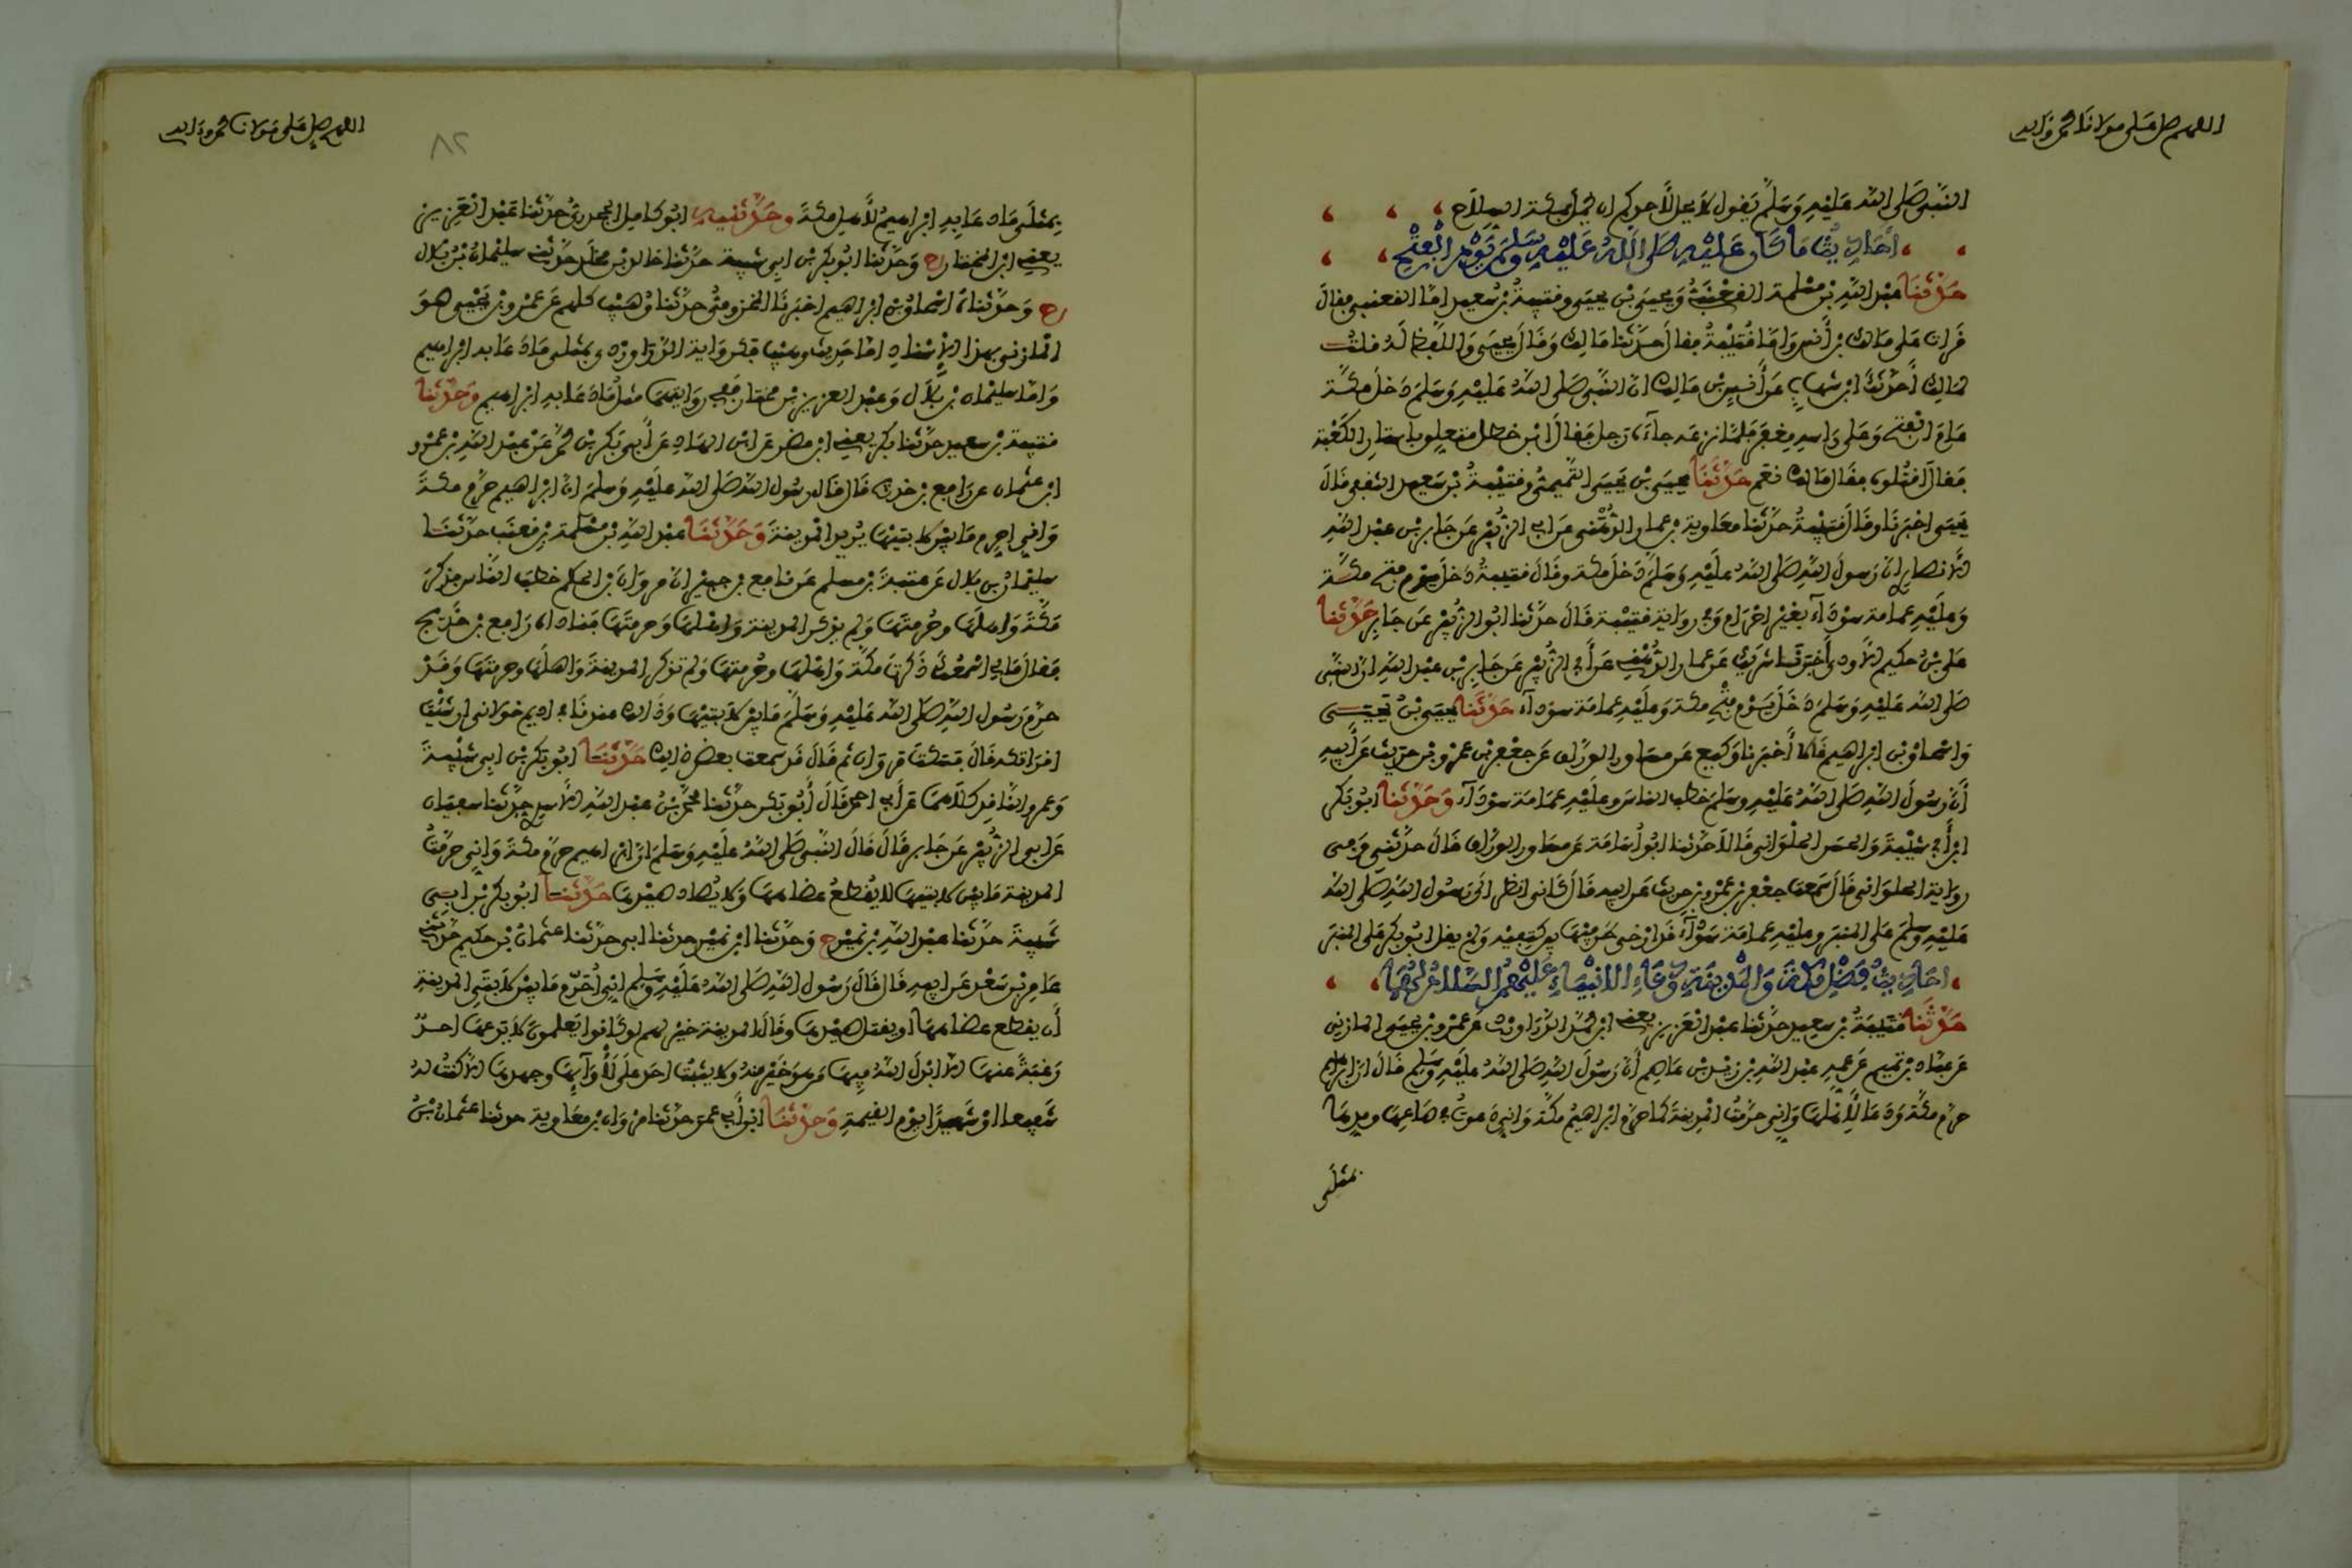 اللهم صل على مولانا محمد وءاله
النبي صلى الله عليه وسلم يقول لا يحل لأحدكم ان يحمل بمكة السلاح
أحاديث ما شاء عليه صلى الله عليه وسلم يوم الفتح
حدثنا عبد الله بن مسلمة القعنبي ويحيى بن يحيى وقتيبة بن سعيد اما القعنبي فقال
قرات على مالك بن أنس واما قتيبة فقال حدثنا مالك وقال يحيى واللفظ له قلت
لمالك أحدثك ابن شهاب عن أنس بن مالك ان النبي صلى الله عليه وسلم دخل مكة
عام الفتح وعلى راسه مغفر فلما نزعه جآءه رجل فقال ابن خطل متعلق باستار الكعبة
فقال اقتلوه فقال مالك نعم حدثنا يحيى بن يحيى التميمي وقتيبة بن سعيد الثقفي قال
يحيى اخبرنا وقال قتيبة حدثنا معاوية بن عمار الدهني عن ابي الزبير عن جابر بن عبد الله
الانصاري ان رسول الله صلى الله عليه وسلم دخل مكة وقال قتيبة دخل يوم فتح مكة
وعليه عمامة سودآء بغير احرام وفي رواية قتيبة قال حدثنا ابو الزبير عن جابر حدثنا
علي بن حكيم الاودي أخبرنا شريك عن عمار الدهني عن أبي الزبير عن جابر بن عبد الله ان النبي
صلى الله عليه وسلم دخل يوم فتح مكة وعليه عمامة سودآء حدثنا يحيى بن يحيى
واسحاق بن ابراهيم قالا أخبرنا وكيع عن مساور الوراق عن جعفر بن عمرو بن حريث عن أبيه
أن رسول الله صلى الله عليه وسلم خطب الناس وعليه عمامة سودآء وحدثنا ابو بكر
ابن أبي شيبة والحسن الحلواني قالا حدثنا ابو أسامة عن مساور الوراق قال حدثني وفي
رواية الحلواني قال سمعت جعفر بن عمرو بن حريث عن ابيه قال كأني انظر الى رسول الله صلى الله
عليه وسلم على المنبر وعليه عمامة سودآء قد ارخى طرفيها بين كتفيه ولم يقل ابو بكر على المنبر
احاديث فضل مكة والمدينة ودعاء الانبياء عليهم السلام لهما
حدثنا قتيبة بن سعيد حدثنا عبد العزيز يعني ابن محمد الدراوردي عن عمرو بن يحيى المازني
عن عباد بن تميم عن عمه عبد الله بن زيد بن عاصم أن رسول الله صلى الله عليه وسلم قال ان ابراهيم
حرم مكة ودعا لأهلها واني حرمت المدينة كما حرم ابراهيم مكة واني دعوت في صاعها ومدها
بمثلى
اللهم صل على مولانا محمد وءاله
٨٢
بمثلى ماد عا به ابراهيم لأهل مكة وحدثنيه ابو كامل الجحدري حدثنا عبد العزيز
يعني ابن المختار ح وحدثنا ابو بكر بن ابي شيبة حدثنا خالد بن مخلد حدثني سليمان بن بلال
ح وحدثناه اسحاق بن ابراهيم اخبرنا المخزومي حدثنا وهيب كلهم عن عمرو بن يحيى هو
المازني بهذا الاسناد اما حديث وهيب فكرواية الدراوردي بمثلى ماد عا به ابراهيم
واما سليمان بن بلال وعبد العزيز بن مختار ففي روايتهما مثل ماد عا به ابراهيم وحدثنا
قتيبة بن سعيد حدثنا بكر يعني ابن مضر عن ابن الهاد عن أبي بكر بن محمد عن عبد الله بن عمرو
ابن عثمان عن رافع بن خديج قال قال رسول الله صلى الله عليه وسلم ان ابراهيم حرم مكة
واني احرم ما بين لابتيها يريد المدينة وحدثنا عبد الله بن مسلمة بن قعنب حدثنا
سليمان بن بلال عن عتبة بن مسلم عن نافع بن جبير ان مروان بن الحكم خطب الناس فذكر
مكة واهلها وحرمتها ولم يذكر المدينة واهلها وحرمتها فناداه رافع بن خديج
فقال مالي اسمعك ذكرت مكة واهلها وحرمتها ولم تذكر المدينة واهلها وحرمتها وقد
حرم رسول الله صلى الله عليه وسلم ما بين لابتيها وذلك عندنا في اديم خولاني ان شئت
اقراتكه قال فسكت مروان ثم قال قد سمعت بعض ذلك حدثنا ابو بكر بن ابي شيبة
وعمرو الناقد كلاهما عن أبي احمد قال أبو بكر حدثنا محمد بن عبد الله الاسدي حدثنا سفيان
عن ابي الزبير عن جابر قال قال النبي صلى الله عليه وسلم ان ابراهيم حرم مكة واني حرمت
المدينة ما بين لابتيها لا يقطع عضاهها ولا يصاد صيدها حدثنا ابو بكر بن ابي
شيبة حدثنا عبد الله بن نمير ح وحدثنا ابن نمير حدثنا ابي حدثنا عثمان بن حكيم حدثني
عامر بن سعد عن ابيه قال قال رسول الله صلى الله عليه وسلم اني أحرم ما بين لابتي المدينة
أن يقطع عضاهها او يقتل صيدها وقال المدينة خير لهم لو كانوا يعلمون لا يدعها احد
رغبة عنها الا ابدل الله فيها من هو خير منه ولا يثبت احد على لأوآئها وجهدها الا كنت له
شفيعا او شهيدا يوم القيمة وحدثنا ابن أبي عمر حدثنا مروان بن معاوية حدثنا عثمان بن